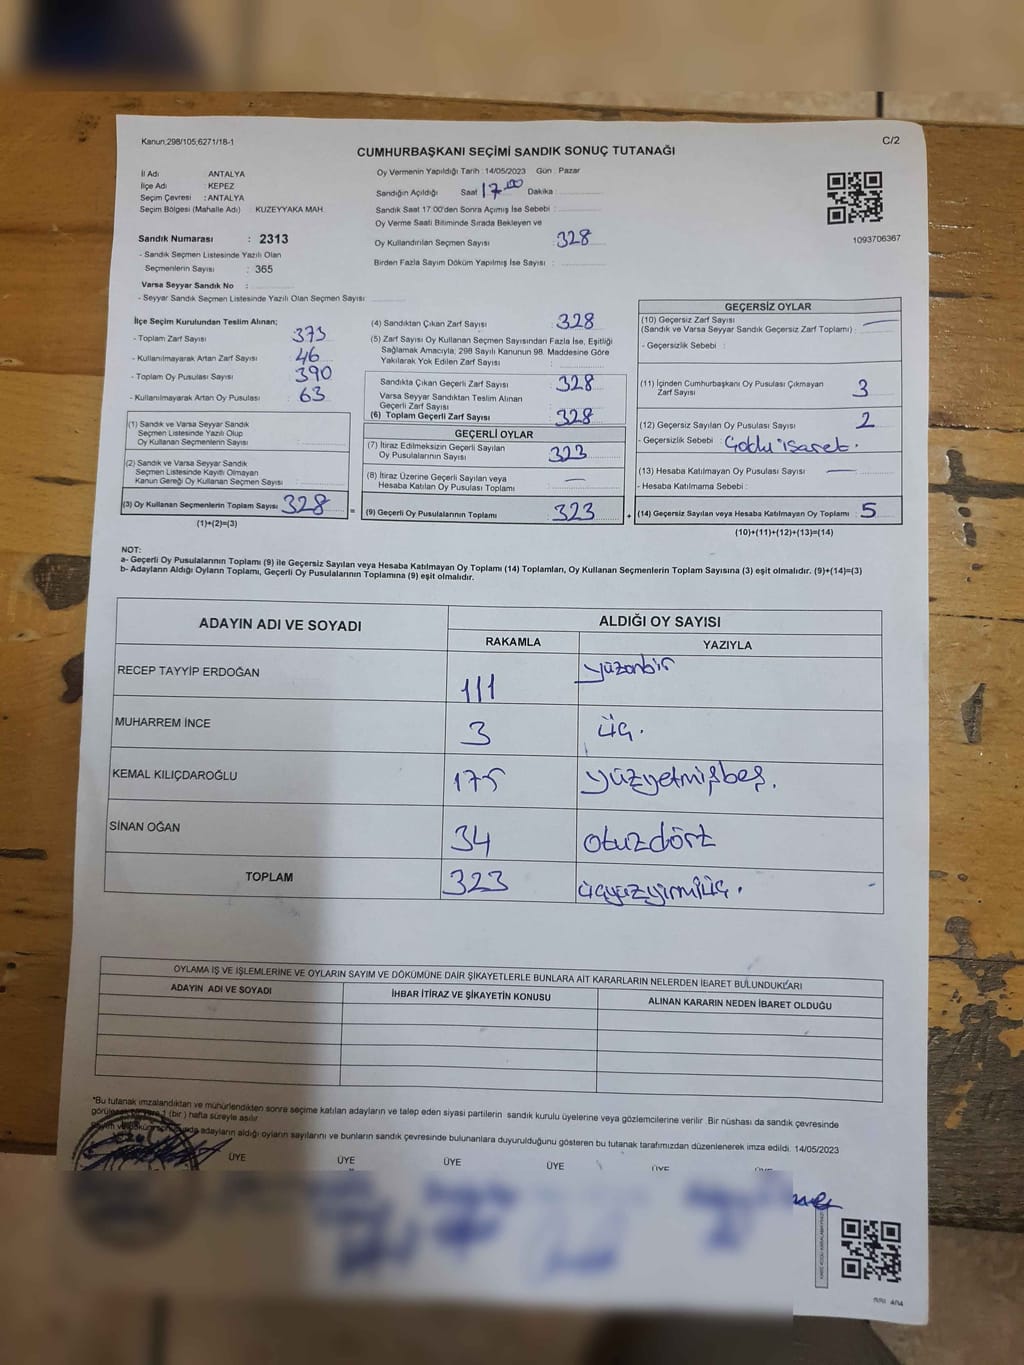 Kanun;298/105;6271/18-1
C/2
CUMHURBAŞKANI SEÇİMİ SANDIK SONUÇ TUTANAĞI
İl Adı : ANTALYA
İlçe Adı : KEPEZ
Seçim Çevresi : ANTALYA
Seçim Bölgesi (Mahalle Adı) : KUZEYYAKA MAH.
Sandık Numarası : 2313
- Sandık Seçmen Listesinde Yazılı Olan
Seçmenlerin Sayısı : 365
Varsa Seyyar Sandık No :
- Seyyar Sandık Seçmen Listesinde Yazılı Olan Seçmen Sayısı:
Oy Vermenin Yapıldığı Tarih : 14/05/2023 Gün : Pazar
Sandığın Açıldığı Saat 17.00 Dakika :
Sandık Saat 17:00'den Sonra Açımış İse Sebebi :
Oy Verme Saati Bitiminde Sırada Bekleyen ve
Oy Kullandırılan Seçmen Sayısı 328
Birden Fazla Sayım Döküm Yapılmış İse Sayısı :
1093706367
İlçe Seçim Kurulundan Teslim Alınan;
- Toplam Zarf Sayısı : 373
- Kullanılmayarak Artan Zarf Sayısı : 46
- Toplam Oy Pusulası Sayısı : 390
- Kullanılmayarak Artan Oy Pusulası : 63
(1) Sandık ve Varsa Seyyar Sandık
Seçmen Listesinde Yazılı Olup
Oy Kullanan Seçmenlerin Sayısı :
(2) Sandık ve Varsa Seyyar Sandık
Seçmen Listesinde Kayıtlı Olmayan
Kanun Gereği Oy Kullanan Seçmen Sayısı :
(3) Oy Kullanan Seçmenlerin Toplam Sayısı : 328 =
(1)+(2)=(3)
(4) Sandıktan Çıkan Zarf Sayısı : 328
(5) Zarf Sayısı Oy Kullanan Seçmen Sayısından Fazla İse, Eşitliği
Sağlamak Amacıyla; 298 Sayılı Kanunun 98. Maddesine Göre
Yakılarak Yok Edilen Zarf Sayısı :
Sandıkta Çıkan Geçerli Zarf Sayısı : 328
Varsa Seyyar Sandıktan Teslim Alınan
Geçerli Zarf Sayısı :
(6) Toplam Geçerli Zarf Sayısı : 328
GEÇERLİ OYLAR
(7) İtiraz Edilmeksizin Geçerli Sayılan
Oy Pusulalarının Sayısı : 323
(8) İtiraz Üzerine Geçerli Sayılan veya
Hesaba Katılan Oy Pusulası Toplamı : —
(9) Geçerli Oy Pusulalarının Toplamı : 323 +
GEÇERSİZ OYLAR
(10) Geçersiz Zarf Sayısı
(Sandık ve Varsa Seyyar Sandık Geçersiz Zarf Toplamı) : —
- Geçersizlik Sebebi :
(11) İçinden Cumhurbaşkanı Oy Pusulası Çıkmayan
Zarf Sayısı : 3
(12) Geçersiz Sayılan Oy Pusulası Sayısı : 2
- Geçersizlik Sebebi : Çoklu işaret.
(13) Hesaba Katılmayan Oy Pusulası Sayısı : —
- Hesaba Katılmama Sebebi :
(14) Geçersiz Sayılan veya Hesaba Katılmayan Oy Toplamı : 5
(10)+(11)+(12)+(13)=(14)
NOT:
a- Geçerli Oy Pusulalarının Toplamı (9) ile Geçersiz Sayılan veya Hesaba Katılmayan Oy Toplamı (14) Toplamları, Oy Kullanan Seçmenlerin Toplam Sayısına (3) eşit olmalıdır. (9)+(14)=(3)
b- Adayların Aldığı Oyların Toplamı, Geçerli Oy Pusulalarının Toplamına (9) eşit olmalıdır.
ADAYIN ADI VE SOYADI
ALDIĞI OY SAYISI
RAKAMLA YAZIYLA
RECEP TAYYİP ERDOĞAN 111 yüzonbir
MUHARREM İNCE 3 üç.
KEMAL KILIÇDAROĞLU 175 yüzyetmişbeş.
SİNAN OĞAN 34 otuzdört
TOPLAM 323 üçyüzyirmiüç.
OYLAMA İŞ VE İŞLEMLERİNE VE OYLARIN SAYIM VE DÖKÜMÜNE DAİR ŞİKAYETLERLE BUNLARA AİT KARARLARIN NELERDEN İBARET BULUNDUKLARI
ADAYIN ADI VE SOYADI İHBAR İTİRAZ VE ŞİKAYETİN KONUSU ALINAN KARARIN NEDEN İBARET OLDUĞU
*Bu tutanak imzalandıktan ve mühürlendikten sonra seçime katılan adayların ve talep eden siyasi partilerin sandık kurulu üyelerine veya gözlemcilerine verilir. Bir nüshası da sandık çevresinde
1 (bir) hafta süreyle asılır
adayların aldığı oyların sayılarını ve bunların sandık çevresinde bulunanlara duyurulduğunu gösteren bu tutanak tarafımızdan düzenlenerek imza edildi. 14/05/2023
ÜYE ÜYE ÜYE ÜYE ÜYE ÜYE